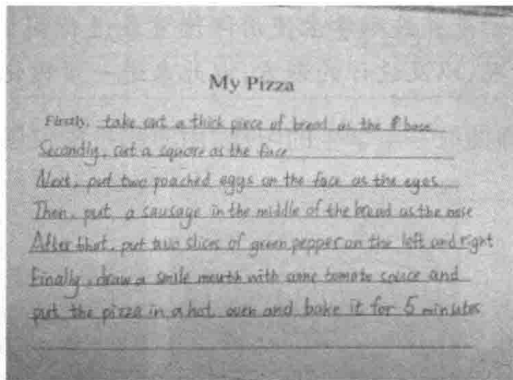 My Pizza
Firstly, take out a thick piece of bread as the base
Secondly, cut a square as the face
Next, put two poached eggs on the face as the eyes
Then, put a sausage in the middle of the bread as the nose
After that, put two slices of green pepper on the left and right
Finally, draw a smile mouth with some tomato sauce and
put the pizza in a hot oven and bake it for 5 minutes